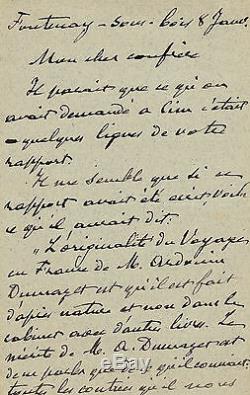 Fontenay-sous-bois 8 Janv.
Mon cher confrère
Il parait que ce qu'on
avait demandé à Cim c'était
quelques lignes de votre
rapport.
Il me semble que si ce
rapport avait été écrit, voilà
ce qu'il aurait dit:
"L'originalité du Voyage
en France de M. Ardouin
Dumazet est qu'il est fait
d'après nature et non dans le
cabinet avec d'autres livres. Le
mérite de M. A. Dumazet est
de ne parler que de ce qu'il connait:
toutes les contrées qu'il nous
ebay